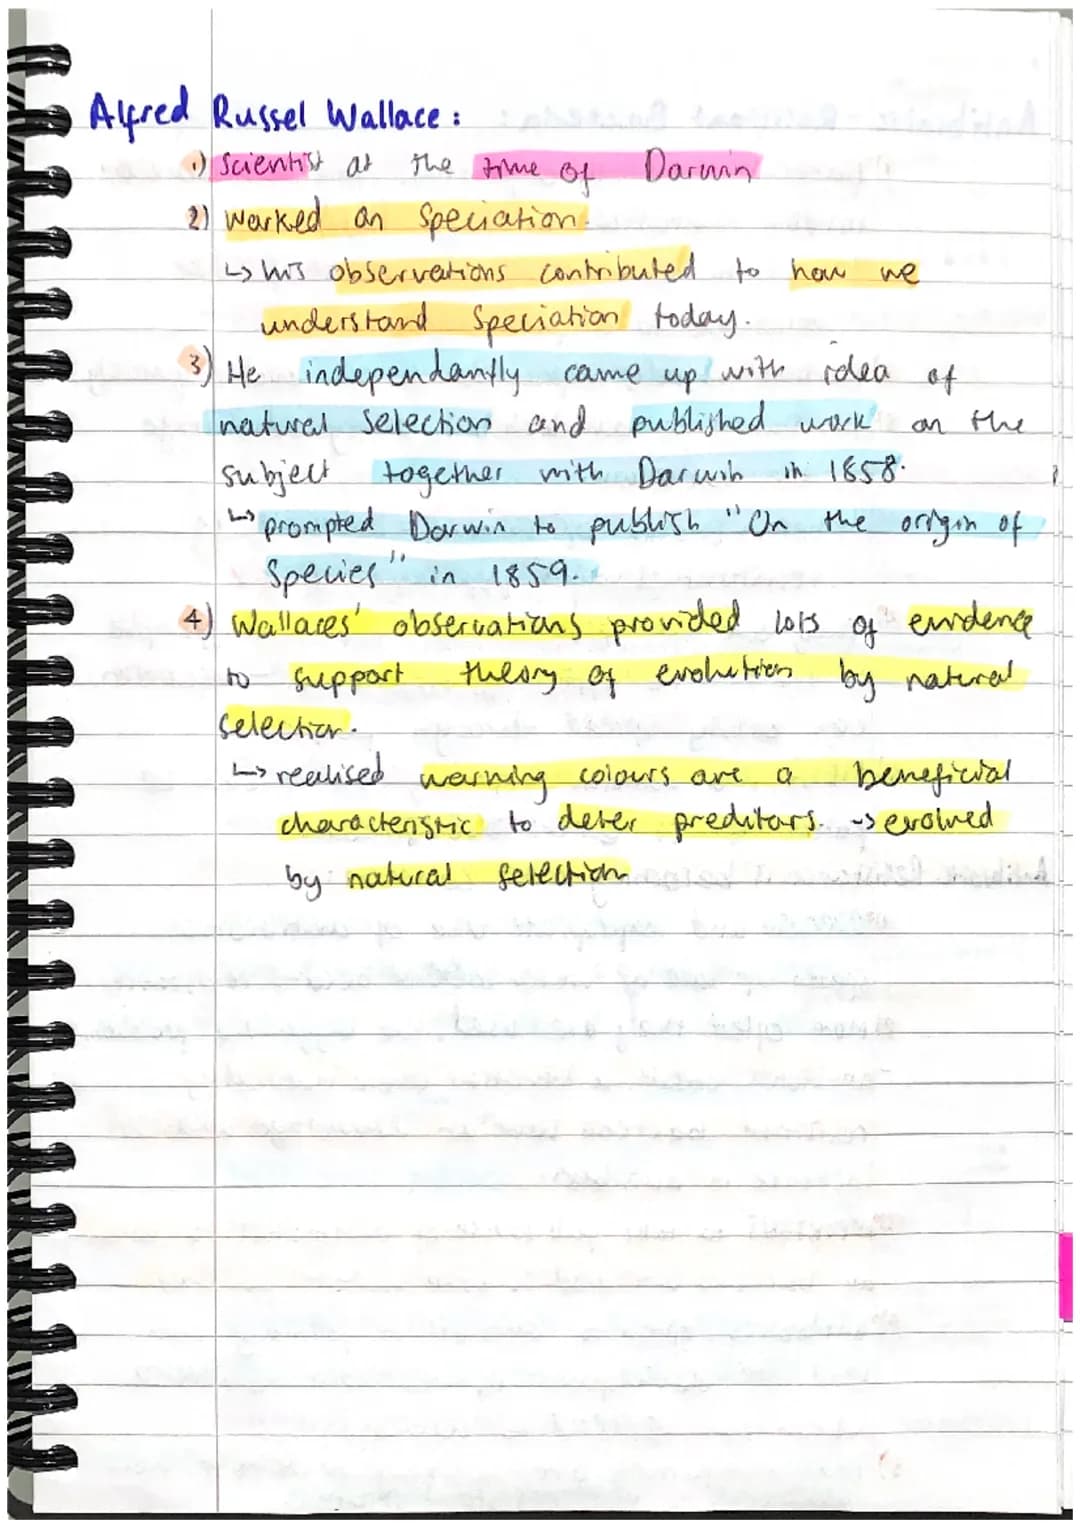 Alfred Russel Wallace:
1) Scientist at the time of Darwin
2) Worked on Speciation.
↳ his observations contributed to how we
understand Speciation today.
3) He independantly came up with idea of
natural Selection and published work on the
subject together with Darwin in 1858.
↳ prompted Darwin to publish "On the origin of
Species" in 1859.
4) Wallaces' observations provided lots of evidence
to support theory of evolution by natural
selection.
↳ realised warning colours are a beneficial
characteristic to deter preditars. -> evolved
by natural selection